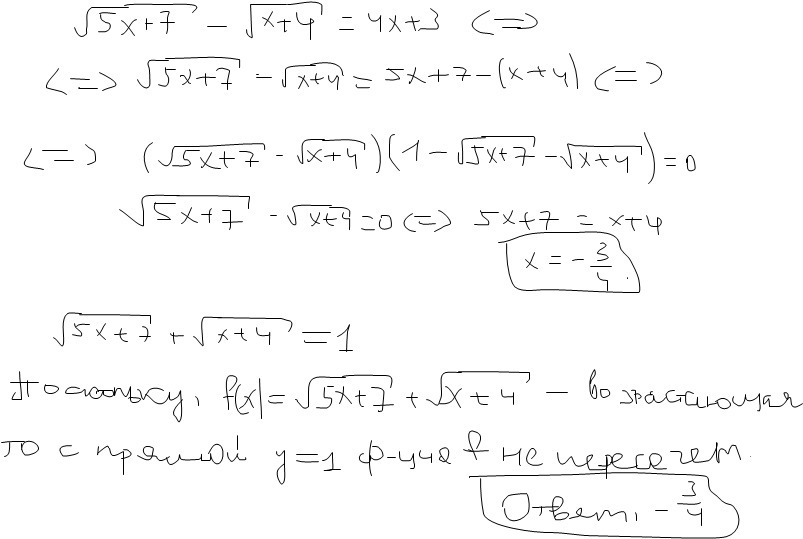 √5x+7 - √x+4 = 4x+3 <=>
<=> √5x+7 - √x+4 = 5x+7-(x+4) <=>
<=> (√5x+7 - √x+4)(1-√5x+7 -√x+4)=0
√5x+7 - √x+4=0 <=> 5x+7 = x+4
x = -3/4.
√5x+7 + √x+4 = 1
Поскольку, f(x)=√5x+7 + √x+4 - возрастающая
то с прямой y=1 ф-ция f не пересечет.
Ответ, -3/4